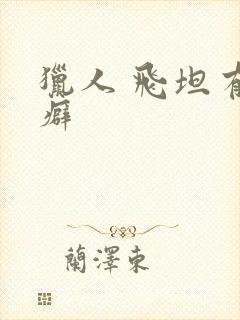 獵人 飛坦有
癖
蘭澤東